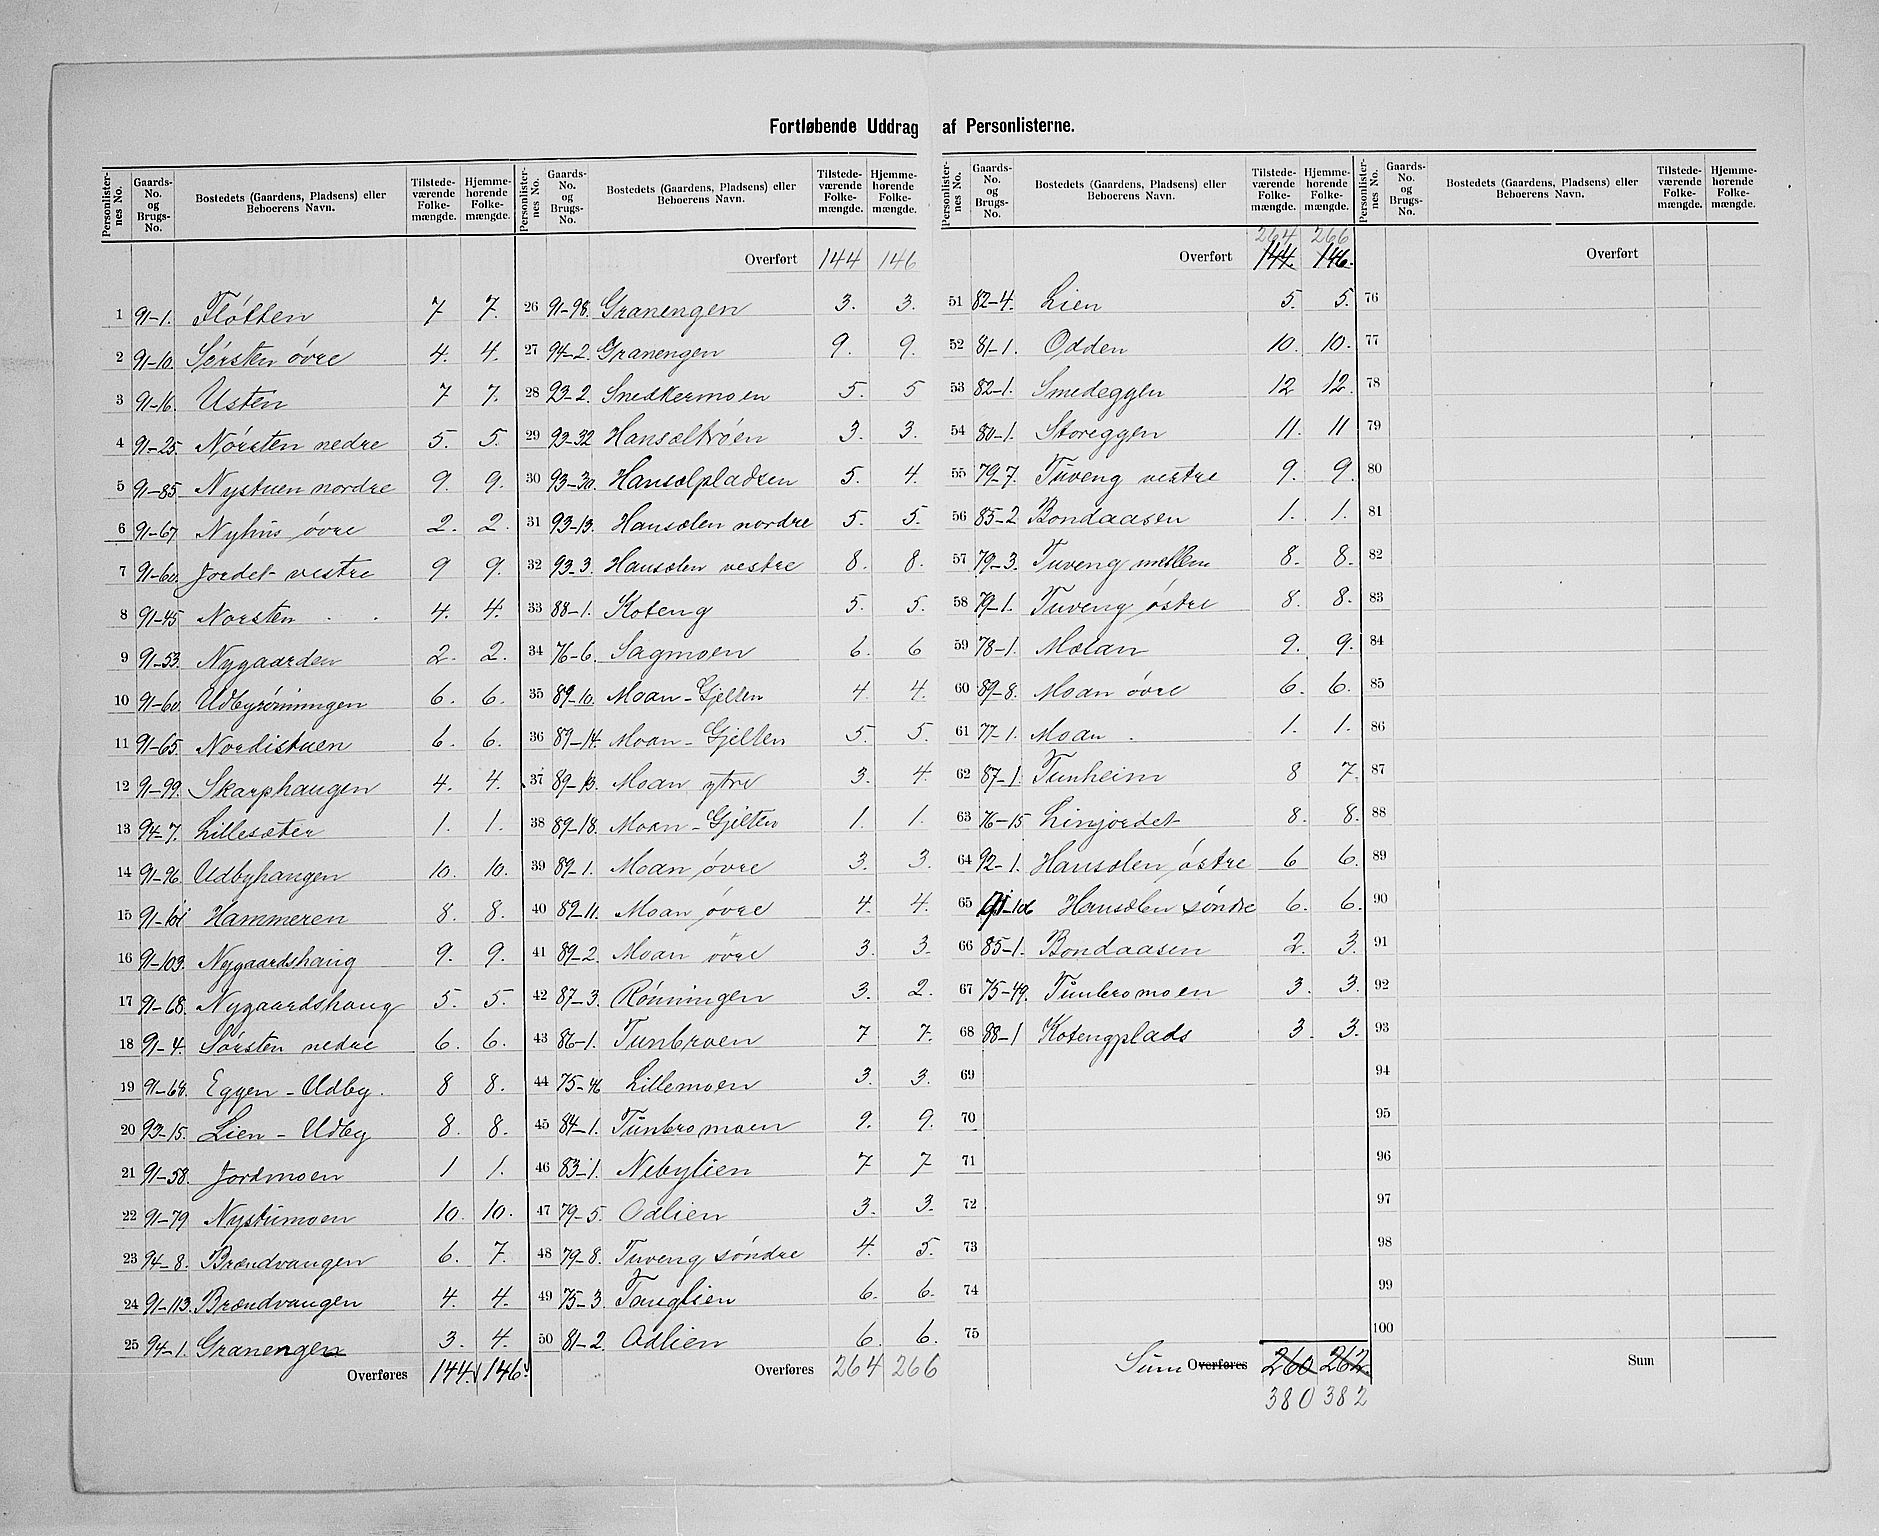 Fortløbende Uddrag af Personlisterne.
Personlisternes No. Gaards-No. og Brugs-No. Bostedets (Gaardens, Pladsens) eller Beboerens Navn. Tilstedeværende Folkemængde. Hjemmehørende Folkemængde.
1 91-1. Fløtten 7 7.
2 91-10. Sørsten øvre 4. 4.
3 91-16. Usten 7 7.
4 91-25. Nørsten nedre 5. 5.
5 91-85. Nystuen nordre 9. 9.
6 91-67. Nyhus øvre 2. 2.
7 91-60. Jordet vestre 9 9.
8 91-45 Norsten 4. 4.
9 91-53. Nygaarden 2. 2.
10 91-60. Udbyrønningen 6. 6.
11 91-65. Nordistuen 6. 6.
12 91-99. Skarphaugen 4. 4.
13 94-7. Lillesæter 1. 1.
14 91-96. Udbyhaugen 10. 10.
15 91-101 Hammeren 8. 8.
16 91-103. Nygaardshaug 9. 9.
17 91-68. Nygaardshaug 5. 5.
18 91-4. Sørsten nedre 6. 6.
19 91-68. Eggen - Udby. 8 8.
20 93-15. Lien - Udby 8. 8.
21 91-58. Jordmoen 1 1.
22 91-79 Nystumoen 10. 10.
23 94-8. Brændvangen 6. 7.
24 91-113. Brændvangen 4. 4.
25 94-1. Granengen 3. 4.
Overføres 144. 146.
Personlisternes No. Gaards-No. og Brugs-No. Bostedets (Gaardens, Pladsens) eller Beboerens Navn. Tilstedeværende Folkemængde. Hjemmehørende Folkemængde.
Overført 144 146
26 91-98. Granengen 3. 3.
27 94-2. Granengen 9. 9.
28 93-2. Snedkermoen 5. 5
29 93-32 Hansæltrøen 3. 3.
30 93-30. Hansælpladsen 5. 4.
31 93-13. Hansælen nordre 5. 5.
32 93-3. Hansælen vestre 8. 8.
33 88-1. Koteng 5. 5.
34 76-6. Sagmoen 6. 6
35 89-10. Moan - Gjelten 4 4.
36 89-14. Moan - Gjelten 5. 5.
37 89-13. Moan ytre 3. 4.
38 89-18. Moan - Gjelten 1. 1.
39 89-1. Moan øvre 3. 3.
40 89-11. Moan øvre 4. 4.
41 89-2. Moan øvre 3. 3.
42 87-3. Rønningen 3. 2.
43 86-1. Tunbroen 7 7.
44 75-46 Lillemoen 3. 3.
45 84-1. Tunbromoen 9. 9.
46 83-1. Nebylien 7 7
47 79-5. Odlien 3. 3.
48 79-8. Tuveng søndre 4. 5.
49 75-3. Tanglien 6. 6.
50 81-2. Odlien 6. 6.
Overføres 264 266
Personlisternes No. Gaards-No. og Brugs-No. Bostedets (Gaardens, Pladsens) eller Beboerens Navn. Tilstedeværende Folkemængde. Hjemmehørende Folkemængde.
264 266
Overført 144. 146.
51 82-4. Lien 5. 5.
52 81-1. Odden 10. 10.
53 82-1. Smedeggen 12 12.
54 80-1. Storeggen 11. 11
55 79-7. Tuveng vestre 9. 9.
56 85-2 Bondaasen 1. 1.
57 79-3. Tuveng mellem 8. 8.
58 79-1. Tuveng østre 8. 8.
59 78-1. Mælan 9. 9.
60 89-8. Moan øvre 6. 6.
61 77-1. Moan 1. 1.
62 87-1. Tunheim 8 7.
63 76-15 Linjordet 8. 8.
64 92-1. Hansælen østre 6 6.
65 91-106 Hansælen søndre 6. 6.
66 85-1. Bondaasen 2. 3.
67 75-49. Tunbromoen 3. 3.
68 88-1 Kotengplads 3. 3.
69
70
71
72
73
74
75
Sum Overføres 260 262.
380 382
Personlisternes No. Gaards-No. og Brugs-No. Bostedets (Gaardens, Pladsens) eller Beboerens Navn. Tilstedeværende Folkemængde. Hjemmehørende Folkemængde.
Overført
76
77
78
79
80
81
82
83
84
85
86
87
88
89
90
91
92
93
94
95
96
97
98
99
100
Sum